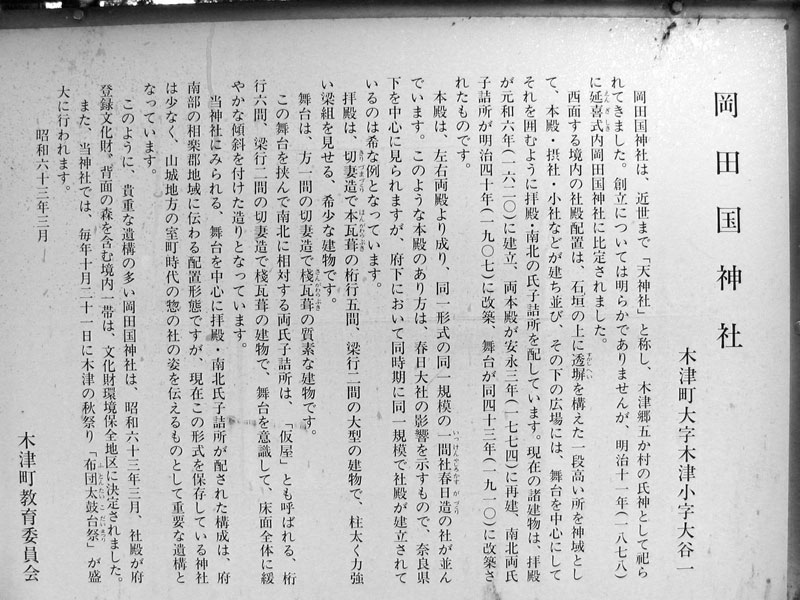 岡田国神社
木津町大字木津小字大谷一
岡田国神社は、近世まで「天神社」と称し、木津郷五か村の氏神として祀ら
れてきました。創立については明らかでありませんが、明治十一年(一八七八)
に延喜式内岡田国神社に比定されました。
西面する境内の社殿配置は、石垣の上に透塀を構えた一段高い所を神域とし
て、本殿・摂社・小社などが建ち並び、その下の広場には、舞台を中心にして
それを囲むように拝殿・南北の氏子詰所を配しています。現在の諸建物は、拝殿
が元和六年(一六二〇)に建立、両本殿が安永三年(一七七四)に再建、南北両氏
子詰所が明治四十年(一九〇七)に改築、舞台が同四十三年(一九一〇)に改築さ
れたものです。
本殿は、左右両殿より成り、同一形式の同一規模の一間社春日造の社が並ん
でいます。このような本殿のあり方は、春日大社の影響を示すもので、奈良県
下を中心に見られますが、府下において同時期に同一規模で社殿が建立されて
いるのは希な例となっています。
拝殿は、切妻造で本瓦葺の桁行五間、梁行二間の大型の建物で、柱太く力強
い梁組を見せる、希少な建物です。
舞台は、方一間の切妻造で棧瓦葺の質素な建物です。
この舞台を挟んで南北に相対する両氏子詰所は、「仮屋」とも呼ばれる、桁
行六間、梁行二間の切妻造で棧瓦葺の建物で、舞台を意識して、床面全体に緩
やかな傾斜を付けた造りとなっています。
当神社にみられる、舞台を中心に拝殿・南北氏子詰所が配された構成は、府
南部の相楽郡地域に伝わる配置形態ですが、現在この形式を保存している神社
は少なく、山城地方の室町時代の惣の社の姿を伝えるものとして重要な遺構と
なっています。
このように、貴重な遺構の多い岡田国神社は、昭和六十三年三月、社殿が府
登録文化財、背面の森を含む境内一帯は、文化財環境保全地区に決定されました。
また、当神社では、毎年十月二十一日に木津の秋祭り「布団太鼓台祭」が盛
大に行われます。
昭和六十三年三月
木津町教育委員会